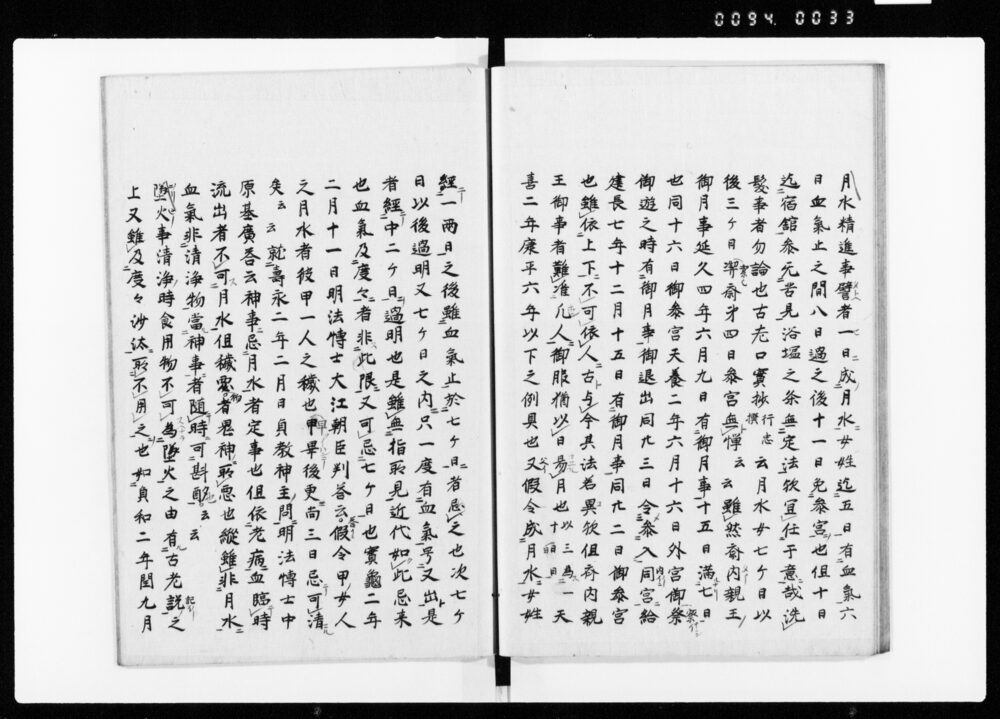 0094.0033
月水精進事譬者一日成月水女姓迄五日有血氣六
日血氣止之間八日過之後十一日免參宮也但十日
迄宿舘參先若見浴塩之条無定法牧宜任于意哉洗
髮事者勿論也古老口實抜行忠云月水女七ヶ日以
後三ヶ日潔齋才四日參宮無憚云云雖然齋内親王
御月事延久四年六月九日有御月事十五日滿七日
也同十六日御參宮天養二年六月十六日外宮御祭
御遊之時有御月事御退出同九三日令參入同宮給
建長七年十二月十五日有御月事同九二日御參宮
也雖依上下不可依人古与今其法若異牧但齋内親
王御事者難准凡人御服猶以日易月也以三為一天
喜二年康平六年以下之例具也又假令成月水女姓
經一兩日之後雖血氣止於七ヶ日者忌之也次七ヶ
日以後過明又七ヶ日之内只一度有血氣号又出是
者經中二ヶ日過明也是雖無指所見近代如此忌来
也血氣及度々者非此限又可忌七ヶ日也寶龜二年
二月十一日明法博士大江朝臣判荅云假令甲女人
之月水者役甲一人之穢也甲畢後更尚三日忌可清
矣云云就壽永二年二月日貞教神主問明法博士中
原基廣荅云神事忌月水者定事也但依老病血臨時
流出者不可月水但穢惡者畏神所惡也縱雖非月水
血氣非清淨物當神事者隨時可斟酌云云
墜火事清淨時食用物不可為墜火之由有古老説之
上又雖及度々沙汰所不用之也如貞和二年閏九月